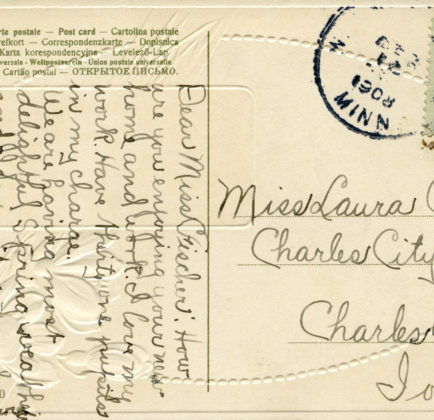 rte postale — Post card — Cartolina postale
refkort — Correspondenzkarte — Dopisnica
Karta korespondencyjna — Levelező-Lap
versale - Weltpostverein - Union postale universelle
Cartão postal — ОТКРЫТОЕ ПИСЬМО.
MINN
1908
Dear Miss Fischer: How
are you enjoying your new
home and work. I love my
work. Have thirty one pupils
in my charge.
We are having most
delightful Spring weather
Miss Laura
Charles City
Charles
Io